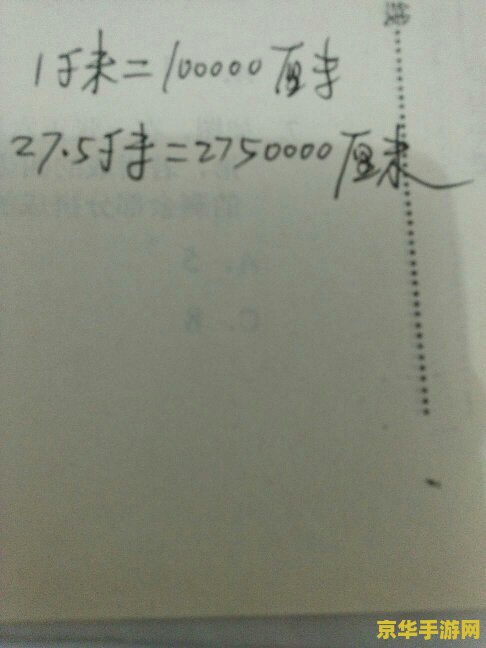 线
1千米=100000厘米
27.5千米=2750000厘米
A. 5
C. 8
京华手游网